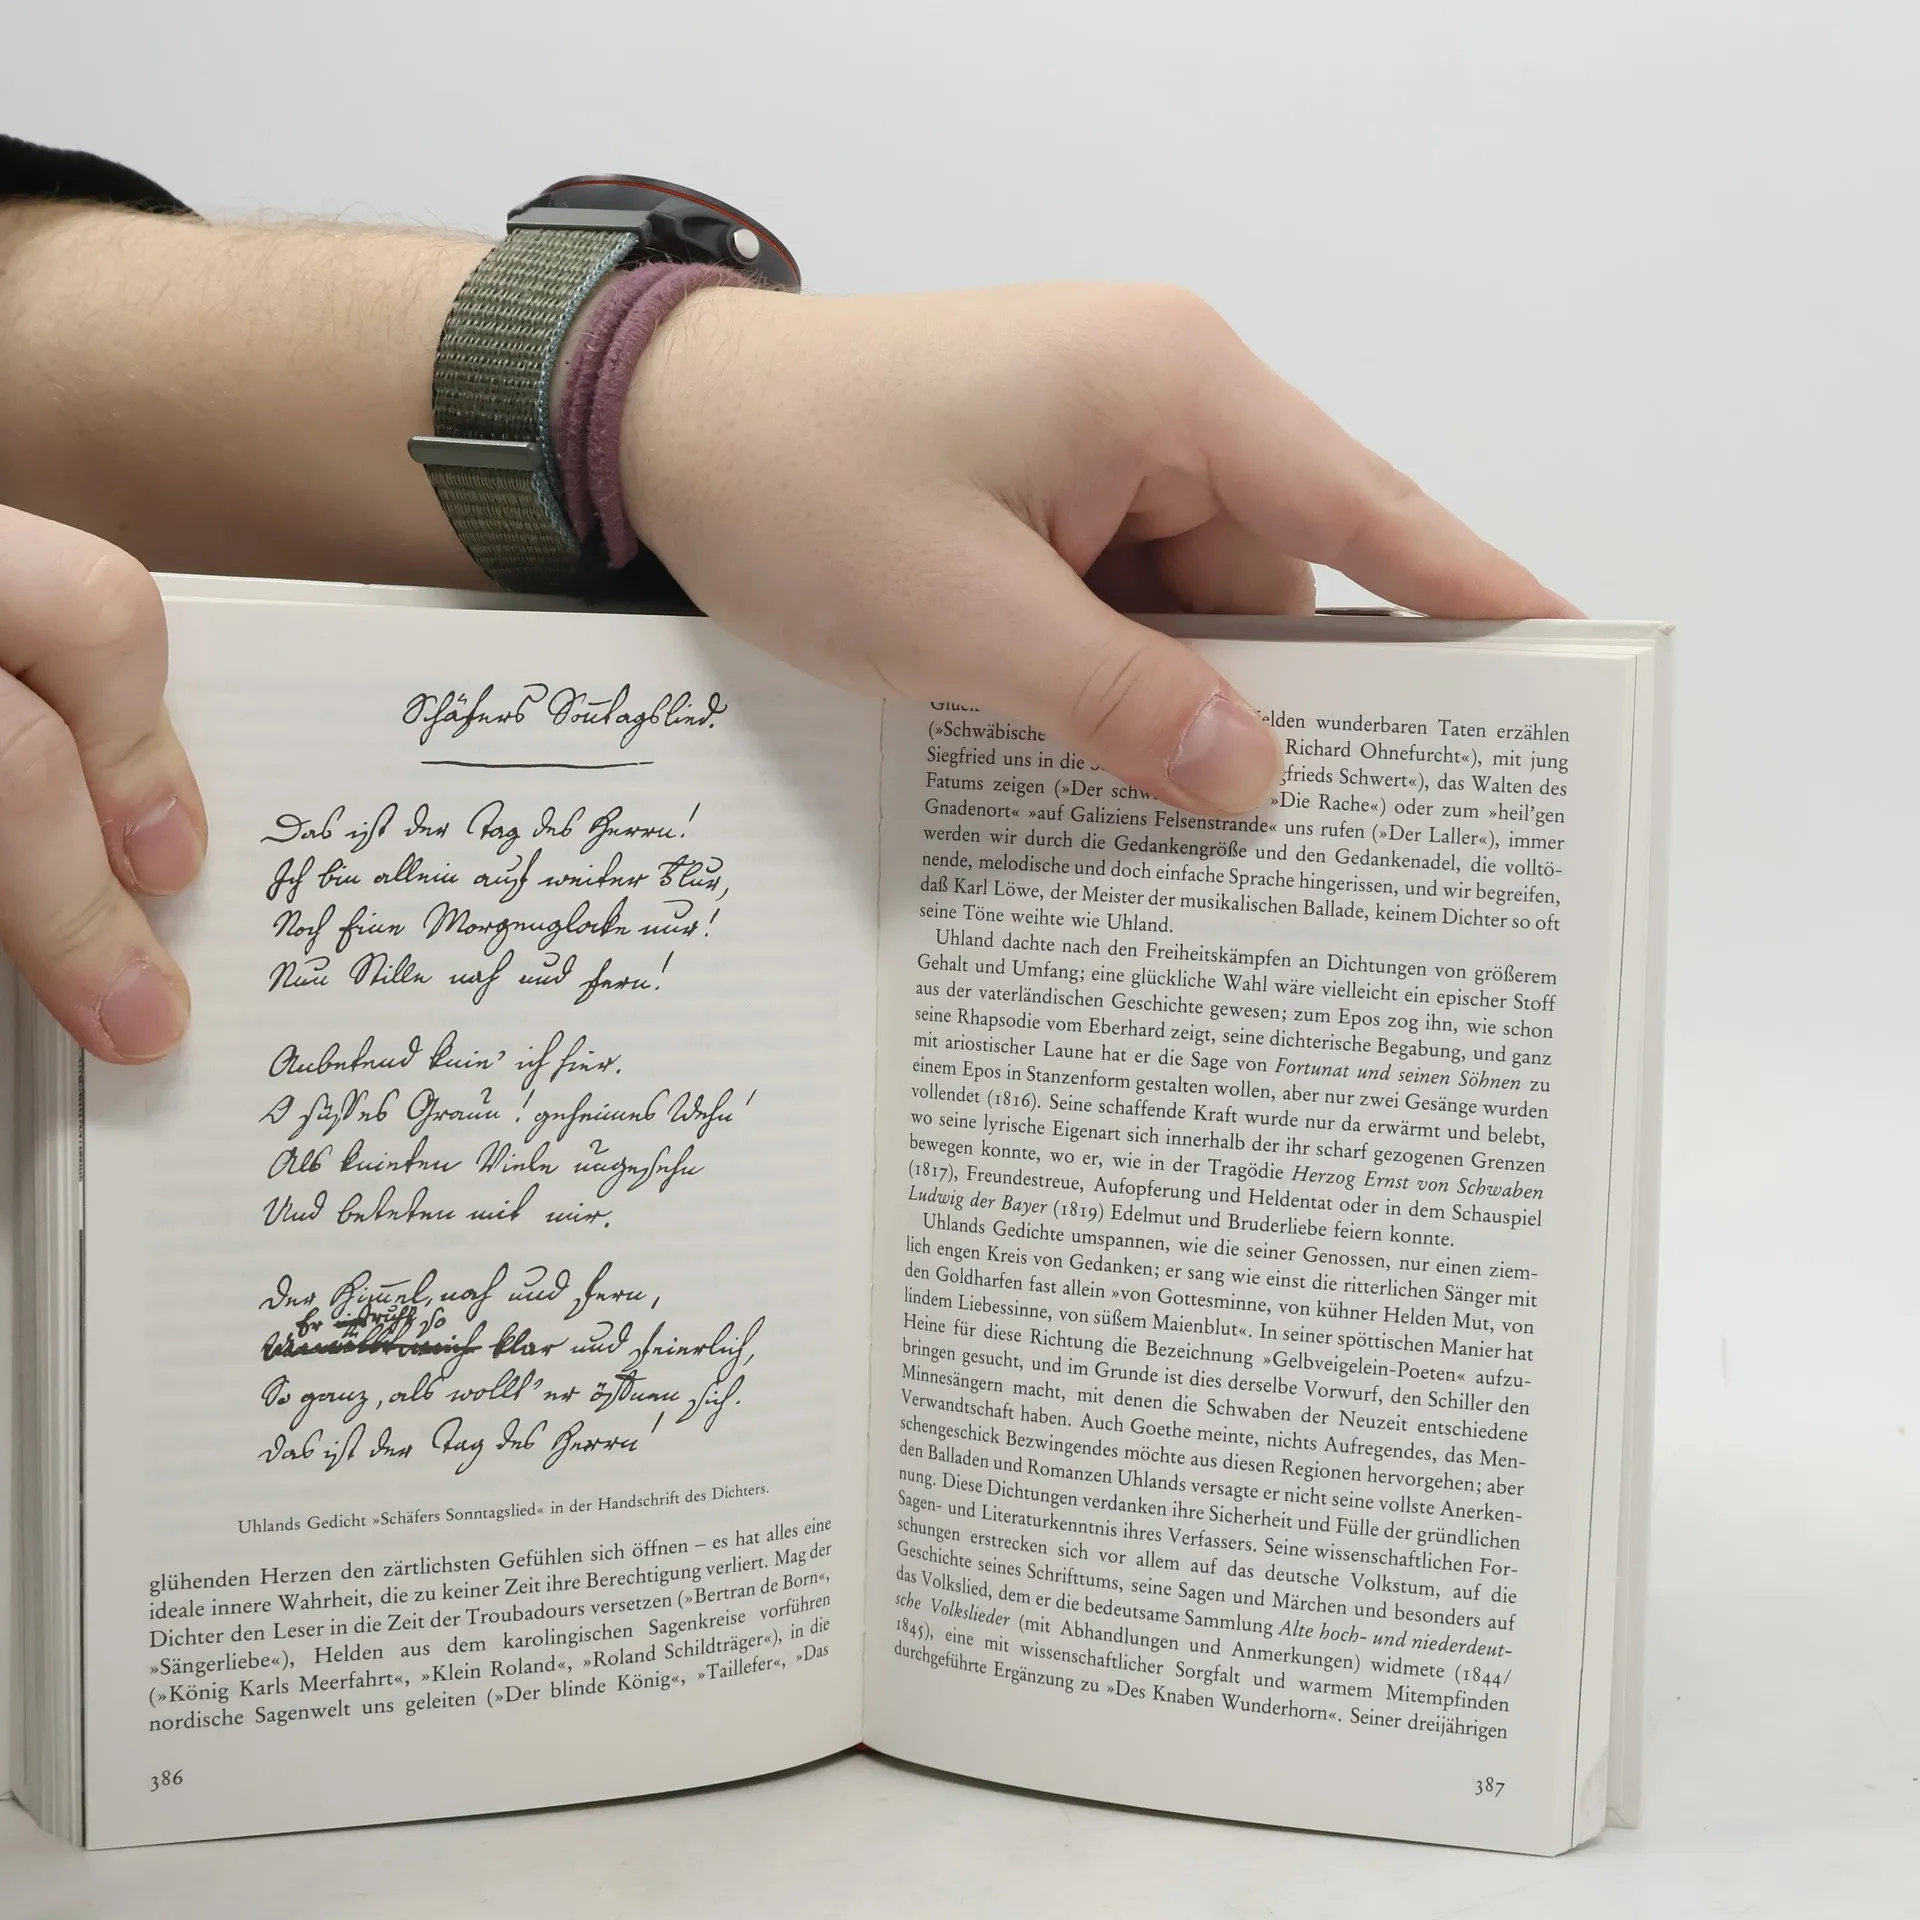 Schäfers Soñtagslied.
Das ist der Tag des Herrn!
Ich bin allein auf weiter Flur,
Noch Eine Morgenglocke nur!
Nun Stille nah und fern!
Anbetend knie' ich hier.
O süßes Graun! geheimes Wehn!
Als knieten Viele ungesehn
Und beteten mit mir.
Der Him̄el, nah und fern,
Er ist so
klar und feierlich,
So ganz, als wollt' er öffnen sich.
Das ist der Tag des Herrn!
Uhlands Gedicht »Schäfers Sonntagslied« in der Handschrift des Dichters.
glühenden Herzen den zärtlichsten Gefühlen sich öffnen – es hat alles eine
ideale innere Wahrheit, die zu keiner Zeit ihre Berechtigung verliert. Mag der
Dichter den Leser in die Zeit der Troubadours versetzen (»Bertran de Born«,
»Sängerliebe«), Helden aus dem karolingischen Sagenkreise vorführen
(»König Karls Meerfahrt«, »Klein Roland«, »Roland Schildträger«), in die
nordische Sagenwelt uns geleiten (»Der blinde König«, »Taillefer«, »Das
386
wunderbaren Taten erzählen
(»Schwäbische Richard Ohnefurcht«), mit jung
Siegfried uns in die Schwert«), das Walten des
Fatums zeigen (»Der »Die Rache«) oder zum »heil'gen
Gnadenort« »auf Galiziens Felsenstrande« uns rufen (»Der Laller«), immer
werden wir durch die Gedankengröße und den Gedankenadel, die volltö-
nende, melodische und doch einfache Sprache hingerissen, und wir begreifen,
daß Karl Löwe, der Meister der musikalischen Ballade, keinem Dichter so oft
seine Töne weihte wie Uhland.
Uhland dachte nach den Freiheitskämpfen an Dichtungen von größerem
Gehalt und Umfang; eine glückliche Wahl wäre vielleicht ein epischer Stoff
aus der vaterländischen Geschichte gewesen; zum Epos zog ihn, wie schon
seine Rhapsodie vom Eberhard zeigt, seine dichterische Begabung, und ganz
mit ariostischer Laune hat er die Sage von Fortunat und seinen Söhnen zu
einem Epos in Stanzenform gestalten wollen, aber nur zwei Gesänge wurden
vollendet (1816). Seine schaffende Kraft wurde nur da erwärmt und belebt,
wo seine lyrische Eigenart sich innerhalb der ihr scharf gezogenen Grenzen
bewegen konnte, wo er, wie in der Tragödie Herzog Ernst von Schwaben
(1817), Freundestreue, Aufopferung und Heldentat oder in dem Schauspiel
Ludwig der Bayer (1819) Edelmut und Bruderliebe feiern konnte.
Uhlands Gedichte umspannen, wie die seiner Genossen, nur einen ziem-
lich engen Kreis von Gedanken; er sang wie einst die ritterlichen Sänger mit
den Goldharfen fast allein »von Gottesminne, von kühner Helden Mut, von
lindem Liebessinne, von süßem Maienblut«. In seiner spöttischen Manier hat
Heine für diese Richtung die Bezeichnung »Gelbveigelein-Poeten« aufzu-
bringen gesucht, und im Grunde ist dies derselbe Vorwurf, den Schiller den
Minnesängern macht, mit denen die Schwaben der Neuzeit entschiedene
Verwandtschaft haben. Auch Goethe meinte, nichts Aufregendes, das Men-
schengeschick Bezwingendes möchte aus diesen Regionen hervorgehen; aber
den Balladen und Romanzen Uhlands versagte er nicht seine vollste Anerken-
nung. Diese Dichtungen verdanken ihre Sicherheit und Fülle der gründlichen
Sagen- und Literaturkenntnis ihres Verfassers. Seine wissenschaftlichen For-
schungen erstrecken sich vor allem auf das deutsche Volkstum, auf die
Geschichte seines Schrifttums, seine Sagen und Märchen und besonders auf
das Volkslied, dem er die bedeutsame Sammlung Alte hoch- und niederdeut-
sche Volkslieder (mit Abhandlungen und Anmerkungen) widmete (1844/
1845), eine mit wissenschaftlicher Sorgfalt und warmem Mitempfinden
durchgeführte Ergänzung zu »Des Knaben Wunderhorn«. Seiner dreijährigen
387